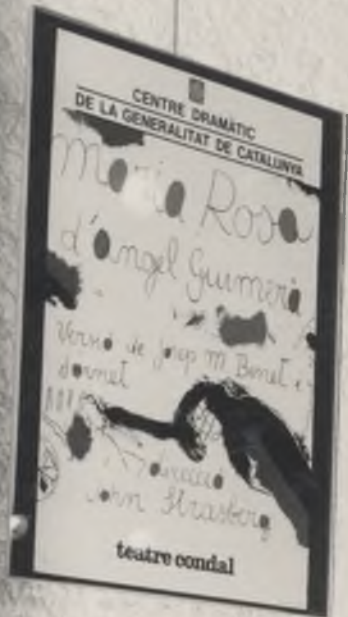 CENTRE DRAMÀTIC
DE LA GENERALITAT DE CATALUNYA
maria Rosa
d'àngel Guimerà
Versió de Josep M Benet i
Jornet
direcció
John Strasberg
teatre condal